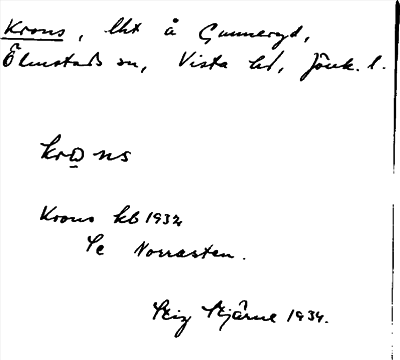 Krons, lht å Gunneryd,
Ölmstads sn, Vista hd, Jönk. l.
krons
Krons kb 1932
Se Norrasten.
Stig Stjärne 1934.